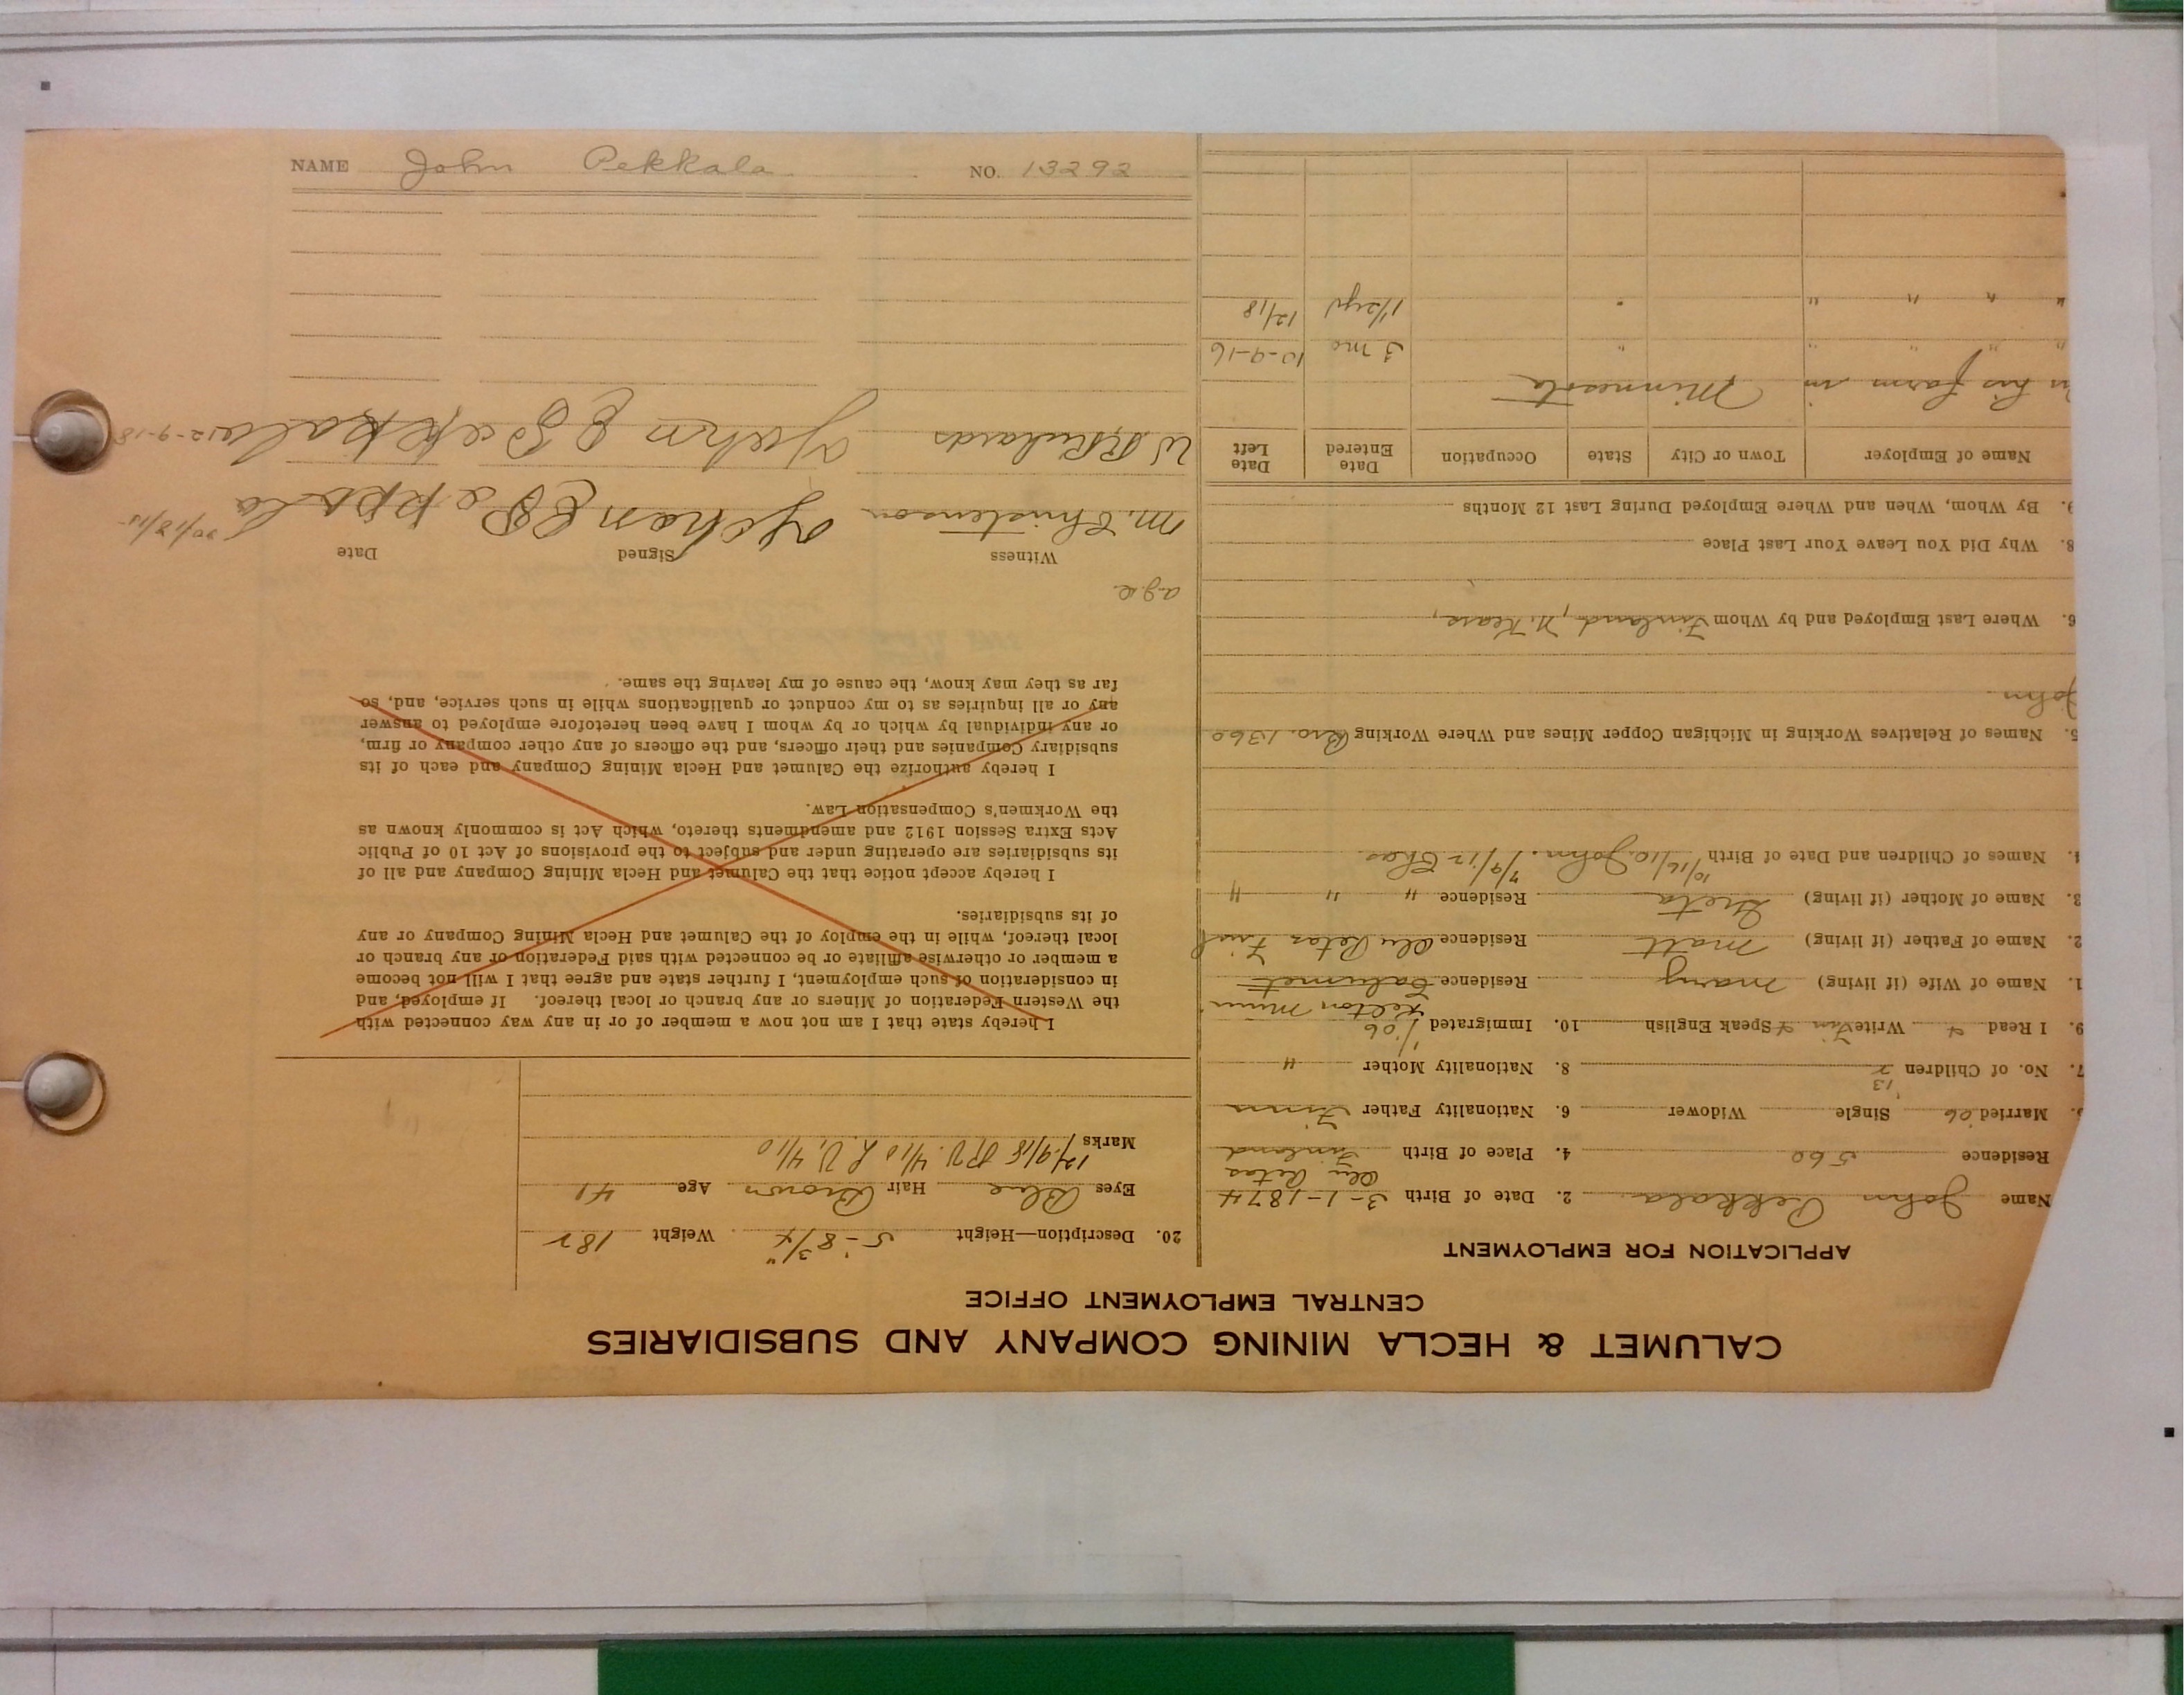 CALUMET & HECLA MINING COMPANY AND SUBSIDIARIES
CENTRAL EMPLOYMENT OFFICE
APPLICATION FOR EMPLOYMENT
Name John Pekkala 2. Date of Birth 3-1-1874
Residence 560 4. Place of Birth Finland
Married '06 Single Widower 6. Nationality Father Finn
13
7. No. of Children 2 8. Nationality Mother "
9. I Read & Write Finn & Speak English 10. Immigrated 1/06
1. Name of Wife (if living) Mary Residence Calumet
2. Name of Father (if living) Matt Residence
3. Name of Mother (if living) Greta Residence " " "
4. Names of Children and Date of Birth 10/16/10 John. 7/9/12 Chas
5. Names of Relatives Working in Michigan Copper Mines and Where Working Bro. 1360
John
6. Where Last Employed and by Whom Finland,
8. Why Did You Leave Your Last Place
9. By Whom, When and Where Employed During Last 12 Months
Name of Employer Town or City State Occupation Date Entered Date Left
On his farm in Minnesota
" " " " " 3 mo 10-9-16
" " " " " 1/2 yr 12/18
20. Description—Height 5-8 3/4" Weight 182
Eyes Blue Hair Brown Age 41
Marks 12/9/18 R.V. 4/10 L.V. 4/10
I hereby state that I am not now a member of or in any way connected with
the Western Federation of Miners or any branch or local thereof. If employed, and
in consideration of such employment, I further state and agree that I will not become
a member or otherwise affiliate or be connected with said Federation or any branch or
local thereof, while in the employ of the Calumet and Hecla Mining Company or any
of its subsidiaries.
I hereby accept notice that the Calumet and Hecla Mining Company and all of
its subsidiaries are operating under and subject to the provisions of Act 10 of Public
Acts Extra Session 1912 and amendments thereto, which Act is commonly known as
the Workmen's Compensation Law.
I hereby authorize the Calumet and Hecla Mining Company and each of its
subsidiary Companies and their officers, and the officers of any other company or firm,
or any individual by which or by whom I have been heretofore employed to answer
any or all inquiries as to my conduct or qualifications while in such service, and, so
far as they may know, the cause of my leaving the same.
age
Witness Signed Date
M. Christenson
W. Richards 12-9-18
NAME John Pekkala NO. 13292